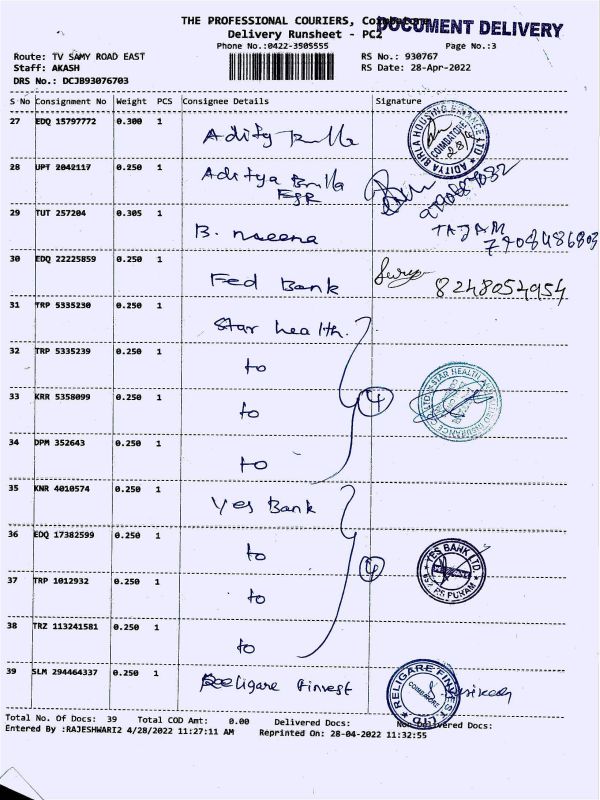 THE PROFESSIONAL COURIERS, Coimbatore
DOCUMENT DELIVERY
Delivery Runsheet - PC2
Phone No.:0422-3505555
Page No.:3
Route: TV SAMY ROAD EAST
RS No.: 930767
Staff: AKASH
RS Date: 28-Apr-2022
DRS No.: DCJB93076703
S No Consignment No Weight PCS Consignee Details Signature
27 EDQ 15797772 0.300 1 Aditya Birla
ADITYA BIRLA HOUSING FINANCE LTD COIMBATORE
28 UPT 2042117 0.250 1 Aditya Birla
29 TUT 257204 0.305 1 B. naeena
7708486803
30 EDQ 22225859 0.250 1 Fed Bank
8248054954
31 TRP 5335230 0.250 1 Star health.
32 TRP 5335239 0.250 1 to
33 KRR 5358099 0.250 1 to
4
34 DPM 352643 0.250 1 to
35 KNR 4010574 0.250 1 Yes Bank
36 EDQ 17382599 0.250 1 to
4
YES BANK LTD.
37 TRP 1012932 0.250 1 to
38 TRZ 113241581 0.250 1 to
39 SLM 294464337 0.250 1 Religare Finvest
RELIGARE FINVEST LTD COIMBATORE
Total No. Of Docs: 39 Total COD Amt: 0.00 Delivered Docs: Non Delivered Docs:
Entered By :RAJESHWARI2 4/28/2022 11:27:11 AM Reprinted On: 28-04-2022 11:32:55